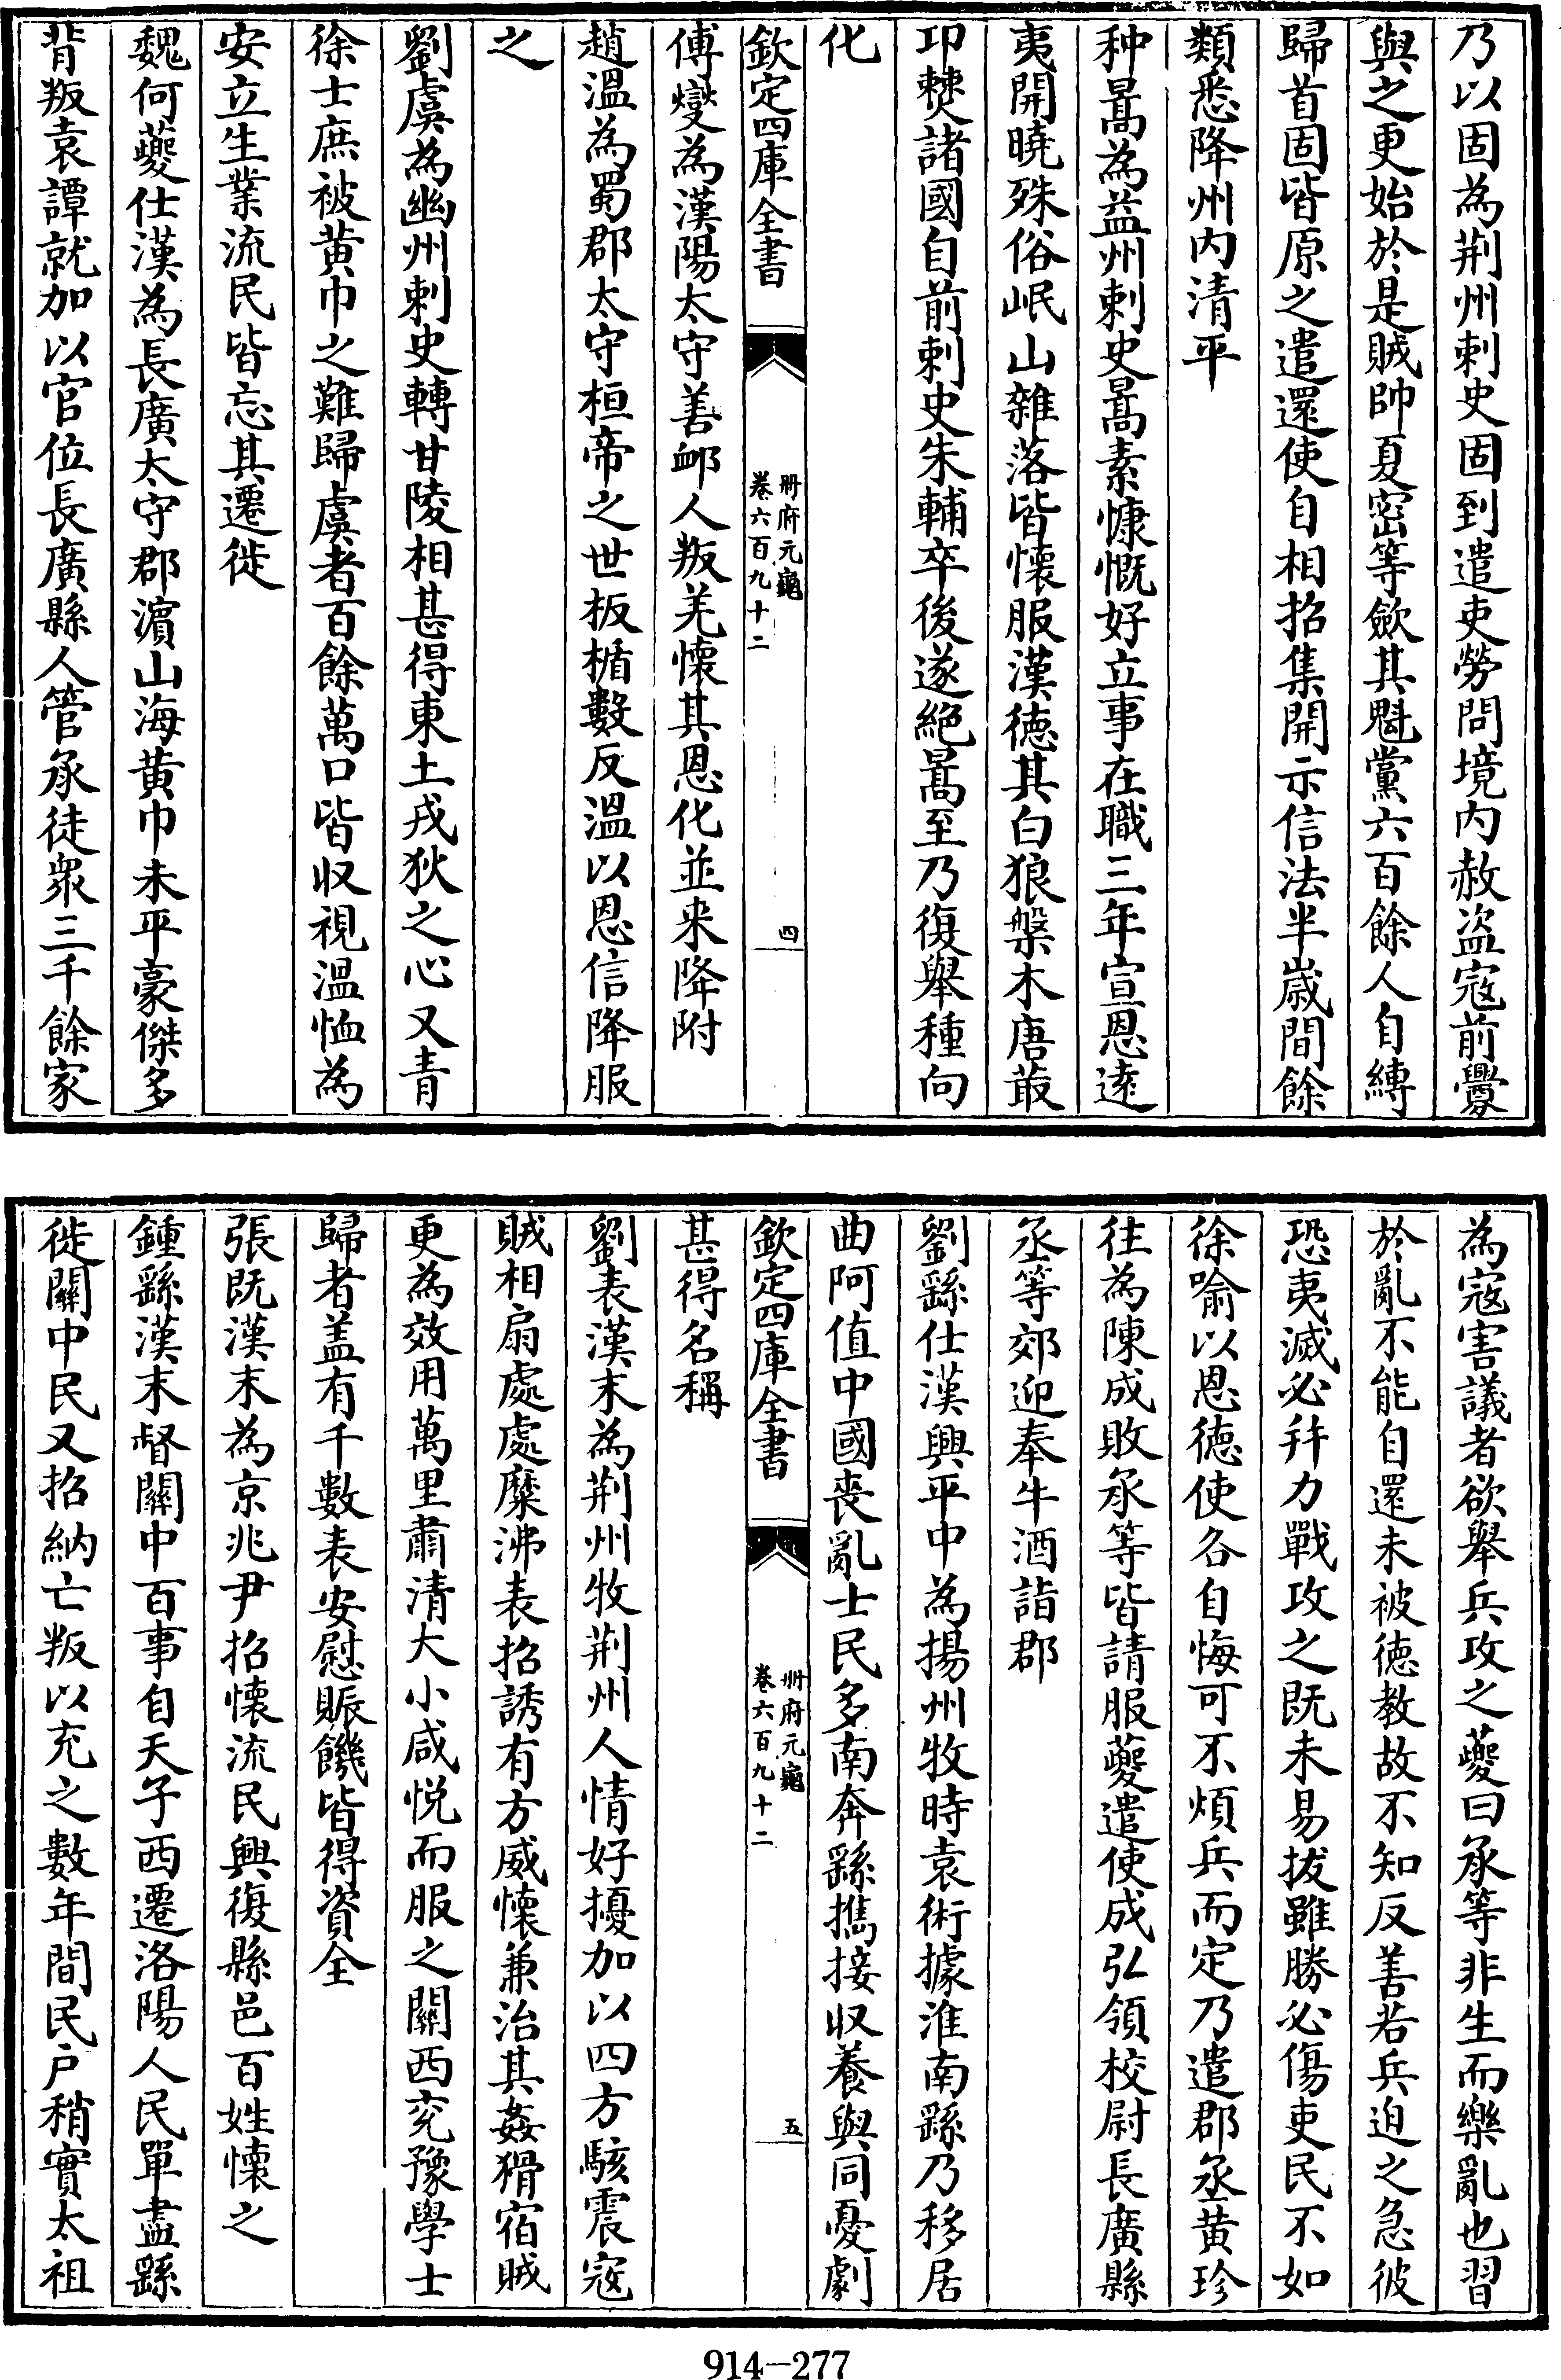 乃以固為荆州刺史固到遣吏勞問境内赦盗宼前釁
與之更始於是賊帥夏宻等歛其魁黨六百餘人自縛
歸首固皆原之遣還使自相招集開示信法半嵗間餘
類悉降州内清平
种暠為益州刺史暠素慷慨好立事在職三年宣恩逺
夷開曉殊俗岷山雜落皆懐服漢徳其白狼槃木唐菆
卭僰諸國自前刺史朱輔卒後遂絶暠至乃復舉種向
化
欽定四庫全書
册府元龜
卷六百九十二
四
傅燮為漢陽太守善䘏人叛羌懐其恩化並来降附
趙溫為蜀郡太守桓帝之世板楯數反溫以恩信降服
之
劉虞為幽州刺史轉甘陵相甚得東土戎狄之心又青
徐士庶被黄巾之難歸虞者百餘萬口皆収視溫恤為
安立生業流民皆忘其遷徙
魏何夔仕漢為長廣太守郡濵山海黄巾未平豪傑多
背叛袁譚就加以官位長廣縣人管承徒衆三千餘家
為宼害議者欲舉兵攻之夔曰承等非生而樂亂也習
於亂不能自還未被徳教故不知反善若兵迫之急彼
恐夷滅必并力戰攻之既未易拔雖勝必傷吏民不如
徐喻以恩徳使各自悔可不煩兵而定乃遣郡丞黄珍
往為陳成敗承等皆請服夔遣使成弘領校尉長廣縣
丞等郊迎奉牛酒詣郡
劉繇仕漢興平中為揚州牧時袁術據淮南繇乃移居
曲阿值中國喪亂士民多南奔繇擕接収養與同憂劇
欽定四庫全書
册府元龜
卷六百九十二
五
甚得名稱
劉表漢末為荆州牧荆州人情好擾加以四方駭震宼
賊相扇處處糜沸表招誘有方威懐兼治其姦猾宿賊
更為效用萬里肅清大小咸悦而服之關西兖豫學士
歸者盖有千數表安慰賑饑皆得資全
張既漢末為京兆尹招懐流民興復縣邑百姓懐之
鍾繇漢末督關中百事自天子西遷洛陽人民單盡繇
徙關中民又招納亡叛以充之數年間民户稍實太祖
914-277